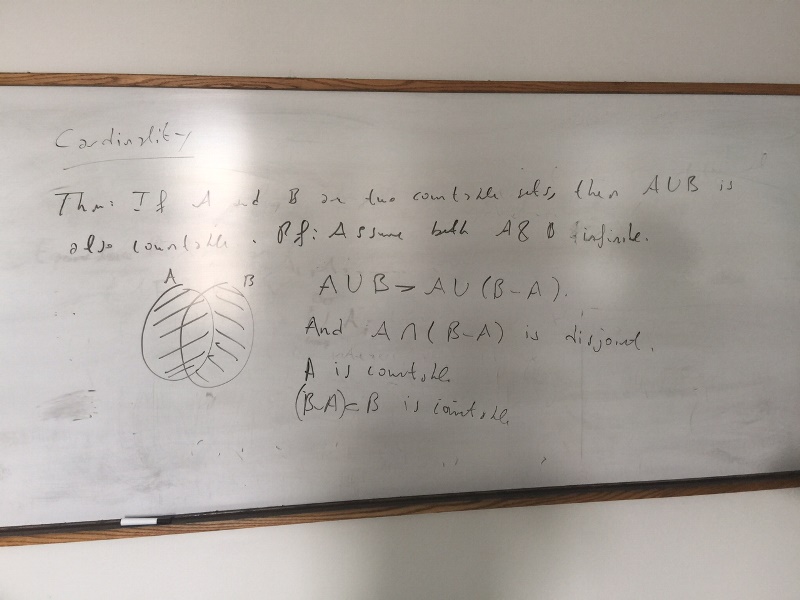 Cardinality
Thm: If A and B are two countable sets, then A∪B is
also countable. Pf: Assume both A & B infinite.
A B
A∪B = A∪(B-A).
And A∩(B-A) is disjoint.
A is countable
(B-A)⊂B is countable